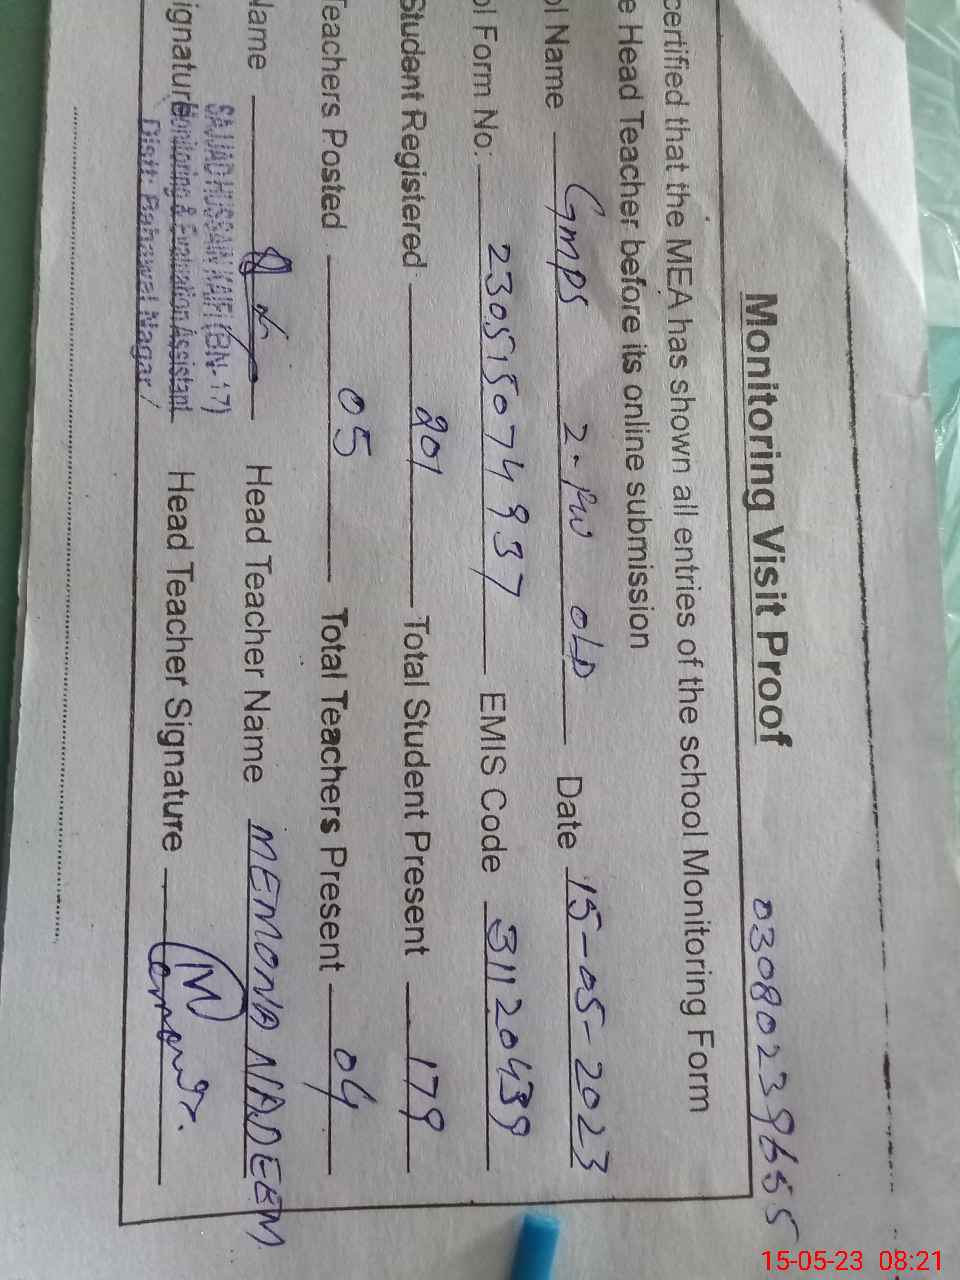 Monitoring Visit Proof 03080239655
certified that the MEA has shown all entries of the school Monitoring Form
e Head Teacher before its online submission
ol Name Gmps 2-PW OLD Date 15-05-2023
ol Form No: 230515074937 EMIS Code 31120439
Student Registered 201 Total Student Present 179
Teachers Posted 05 Total Teachers Present 04
Name Head Teacher Name MEMONA NADEEM
SAJJAD HUSSAIN KAIFI (BN-17)
ignature Monitoring & Evaluation Assistant Head Teacher Signature
Distt: Bahawal Nagar
15-05-23 08:21